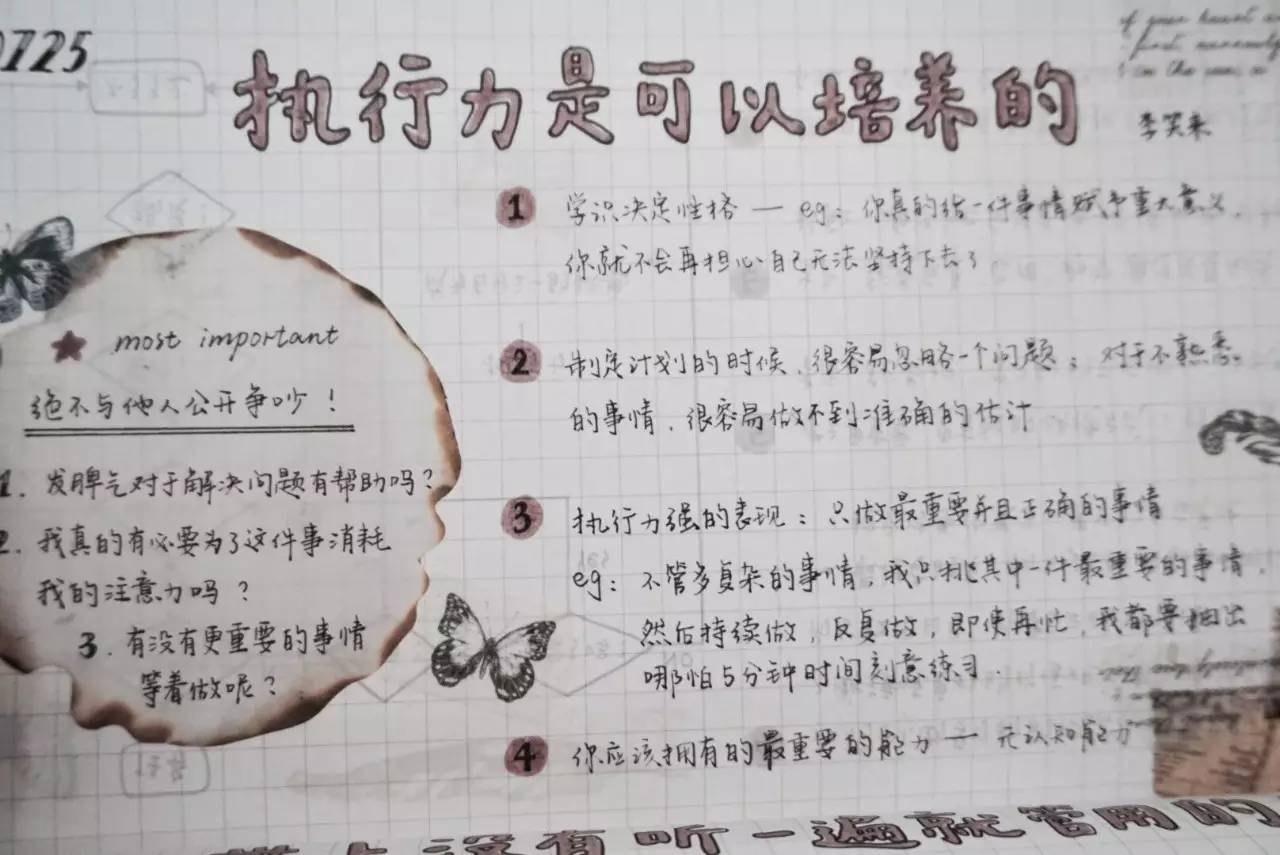 0725
执行力是可以培养的
李笑来
most important
绝不与他人公开争吵！
1. 发脾气对于解决问题有帮助吗？
2. 我真的有必要为了这件事消耗
我的注意力吗？
3. 有没有更重要的事情
等着做呢？
1 学识决定性格 — eg：你真的给一件事情赋予重大意义，
你就不会再担心自己无法坚持下去了
2 制定计划的时候，很容易忽略一个问题：对于不熟悉
的事情，很容易做不到准确的估计
3 执行力强的表现：只做最重要并且正确的事情
eg：不管多复杂的事情，我只挑其中一件最重要的事情，
然后持续做，反复做，即使再忙，我都要抽出
哪怕5分钟时间刻意练习.
4 你应该拥有的最重要的能力 — 元认知能力
没有听一遍就管用的